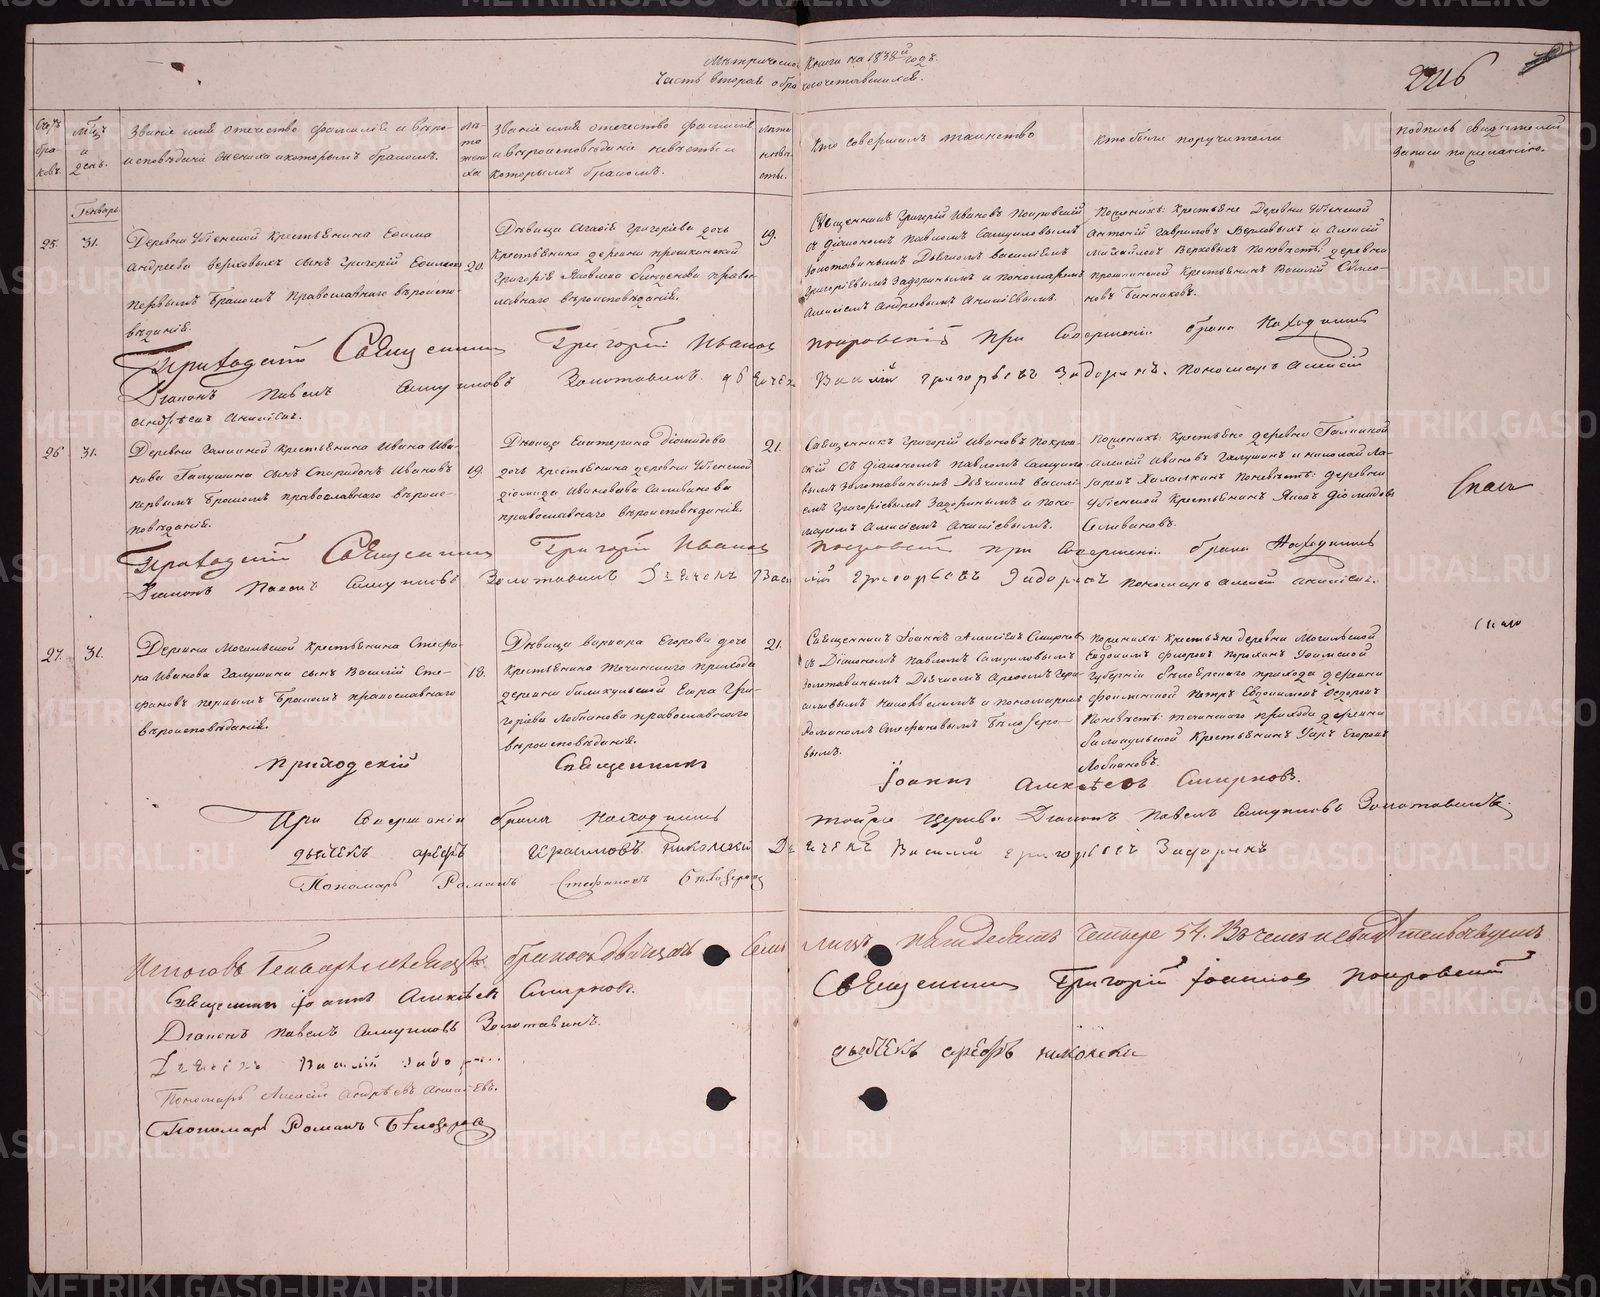 Метрической книги на 1838й годъ.
Часть вторая о бракосочетавшихся.
2216
Счетъ браковъ.
Мѣсяцъ и день.
Званіе имя отечество фамилія и вѣроисповѣданіе жениха и которымъ бракомъ.
Лѣто жениха
Званіе имя отечество фамилія и вѣроисповѣданіе невѣсты и которымъ бракомъ.
Лѣта невѣсты.
Кто совершалъ таинство
Кто были поручители
Подпись свидѣтелей записи по желанію.
Генварь
25.
31.
Деревни Убіенской крестьянина Ефима
Андреева Верховыхъ сынъ Григорій Ефимовъ
первымъ бракомъ православнаго вѣроиспо-
вѣданія.
20.
Дѣвица Агафія Григорьева дочь
крестьянина деревни
Григорія Яковлева православ-
славнаго вѣроисповѣданія.
19.
Священникъ Григорій Ивановъ Покровскій
съ діакономъ Павломъ Самуиловымъ
Золотавинымъ Дьячкомъ Василіемъ
Григорьевымъ Задоринымъ и пономаремъ
Алексіемъ Андреевымъ
По женихѣ крестьяне Деревни Убіенской
Антоній Гавриловъ Верховыхъ и Алексій
Михайловъ Верховыхъ По невѣстѣ деревни
крестьянинъ Василій Симео-
новъ Банниковъ.
Приходскій Священникъ Григорій Ивановъ Покровскій При Совершеніи брака Находились
Діаконъ Павелъ Самуиловъ Золотавинъ. дьячекъ Василій Григорьевъ Задоринъ. Пономарь Алексій
Андреевъ
26
31.
Деревни Галкиной крестьянина Ивана Ива-
нова Галушина сынъ Спиридонъ Ивановъ
первымъ бракомъ православнаго вѣроис-
повѣданія.
19.
Дѣвица Екатерина Діомидова
дочь крестьянина деревни Убіенской
Діомида Иванова Селиванова
православнаго вѣроисповѣданія.
21.
Священникъ Григорій Ивановъ Покров-
скій Съ діакономъ Павломъ Самуило-
вымъ Золотавинымъ Дьячкомъ Василі-
емъ Григорьевымъ Задоринымъ и поно-
маремъ Алексіемъ
По женихѣ: крестьяне деревни Галкиной
Алексій Ивановъ Галушинъ и Николай Ла-
заревъ По невѣстѣ: деревни
Убіенской крестьянинъ Яковъ Діомидовъ
Селивановъ.
Приходскій Священникъ Григорій Ивановъ Покровскій при Совершеніи брака Находились
Діаконъ Павелъ Самуиловъ Золотавинъ Дьячекъ Василій Григорьевъ Задоринъ Пономарь Алексій
27.
31.
Деревни Могильской крестьянина Стефа-
на Иванова Галушина сынъ Василій Сте-
фановъ первымъ бракомъ православнаго
вѣроисповѣданія.
18.
Дѣвица Варвара Егорова дочь
крестьянина Теченскаго прихода
деревни Баликульской Егора Гри-
горьева Лобанова православнаго
вѣроисповѣданія.
21.
Священникъ Іоаннъ Алексіевъ Смирновъ
съ Діакономъ Павломъ Самуиловымъ
Золотавинымъ Дьячкомъ Арефомъ Гера-
симовымъ и пономаремъ
Романомъ Стефановымъ Бѣлозеро-
вымъ.
По женихѣ: крестьяне деревни Могильской
Евдокимъ Уфимской
Губерніи прихода деревни
Петръ Евдокимовъ Федоровъ
По невѣстѣ: Теченскаго прихода деревни
Баликульской Крестьянинъ Егоровъ
Лобановъ.
приходскій Священникъ Іоаннъ Алексѣевъ Смирновъ.
При Совершеніи брака находились тойже Церкви Діаконъ Павелъ Самуиловъ Золотавинъ.
дьячекъ арефъ Герасимовъ Дьячекъ Василій Григорьевъ Задоринъ
Пономарь Романъ Стефановъ Бѣлозеровъ
Итого въ Генварѣ мѣсяцѣ браковъ двадцать семь лицъ пятьдесятъ четыре 54. Въ чемъ и свидѣтельствуемъ
Священникъ Іоаннъ Алексѣевъ Смирновъ.
Священникъ Григорій Іоанновъ Покровскій
Діаконъ Павелъ Самуиловъ Золотавинъ.
Дьячекъ Василій Задоринъ
дьячекъ арефъ
Пономарь Алексій Андреевъ
Пономарь Романъ Бѣлозеровъ
METRIKI.GASO-URAL.RU